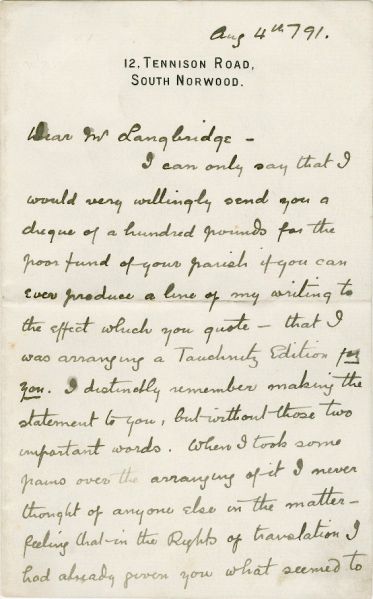 Aug 4th / 91.
12, TENNISON ROAD,
SOUTH NORWOOD.
Dear Mr Langbridge –
I can only say that I
would very willingly send you a
cheque of a hundred pounds for the
poor fund of your parish if you can
ever produce a line of my writing to
the effect which you quote – that I
was arranging a Tauchnitz Edition for
you. I distinctly remember making the
statement to you, but without those two
important words. When I took some
pains over the arranging of it I never
thought of anyone else in the matter –
feeling that in the Rights of translation I
had already given you what seemed to